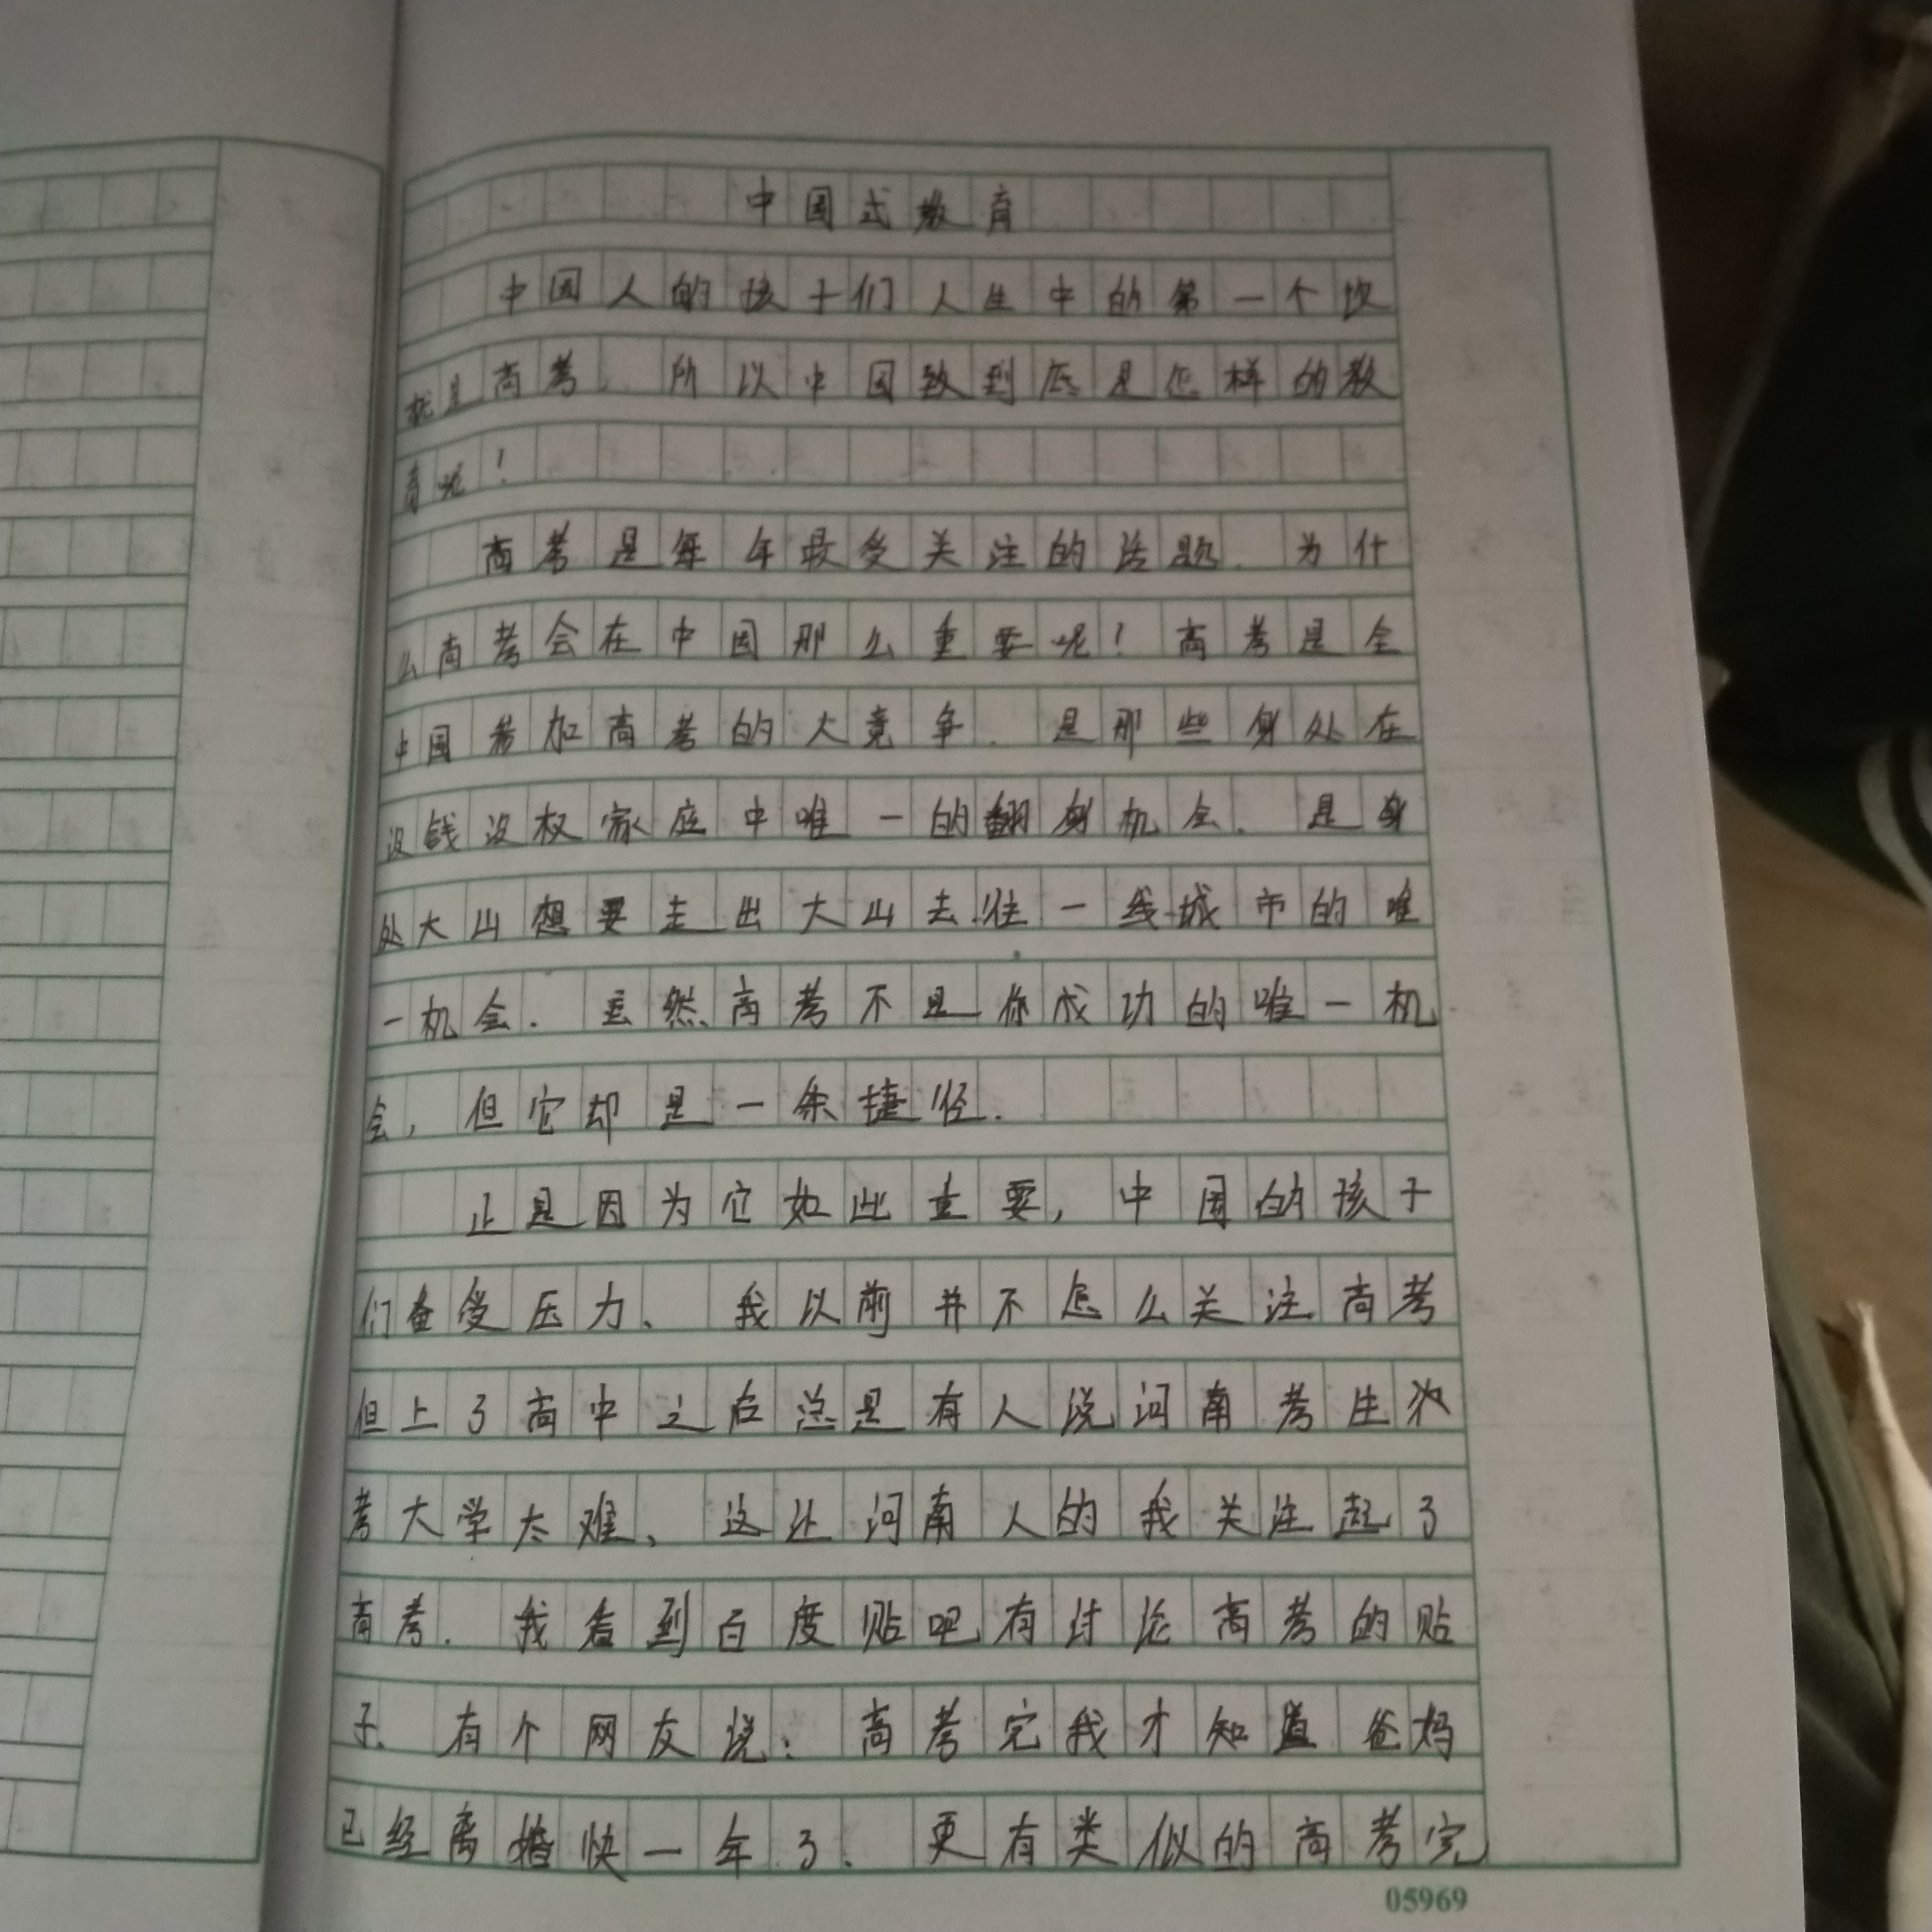 中国式教育
中国人的孩子们人生中的第一个坎
就是高考.所以中国教到底是怎样的教
育呢!
高考是每年最受关注的话题.为什
么高考会在中国那么重要呢!高考是全
中国参加高考的大竞争.是那些身处在
没钱没权家庭中唯一的翻身机会、是身
处大山想要走出大山去往一线城市的唯
一机会.虽然高考不是你成功的唯一机
会,但它却是一条捷径.
正是因为它如此重要,中国的孩子
们备受压力、我以前并不怎么关注高考
但上了高中之后总是有人说河南考生
考大学太难、这让河南人的我关注起了
高考.我看到百度贴吧有讨论高考的贴
子、有个网友说:高考完我才知道爸妈
已经离婚快一年了.更有类似的高考完
05969